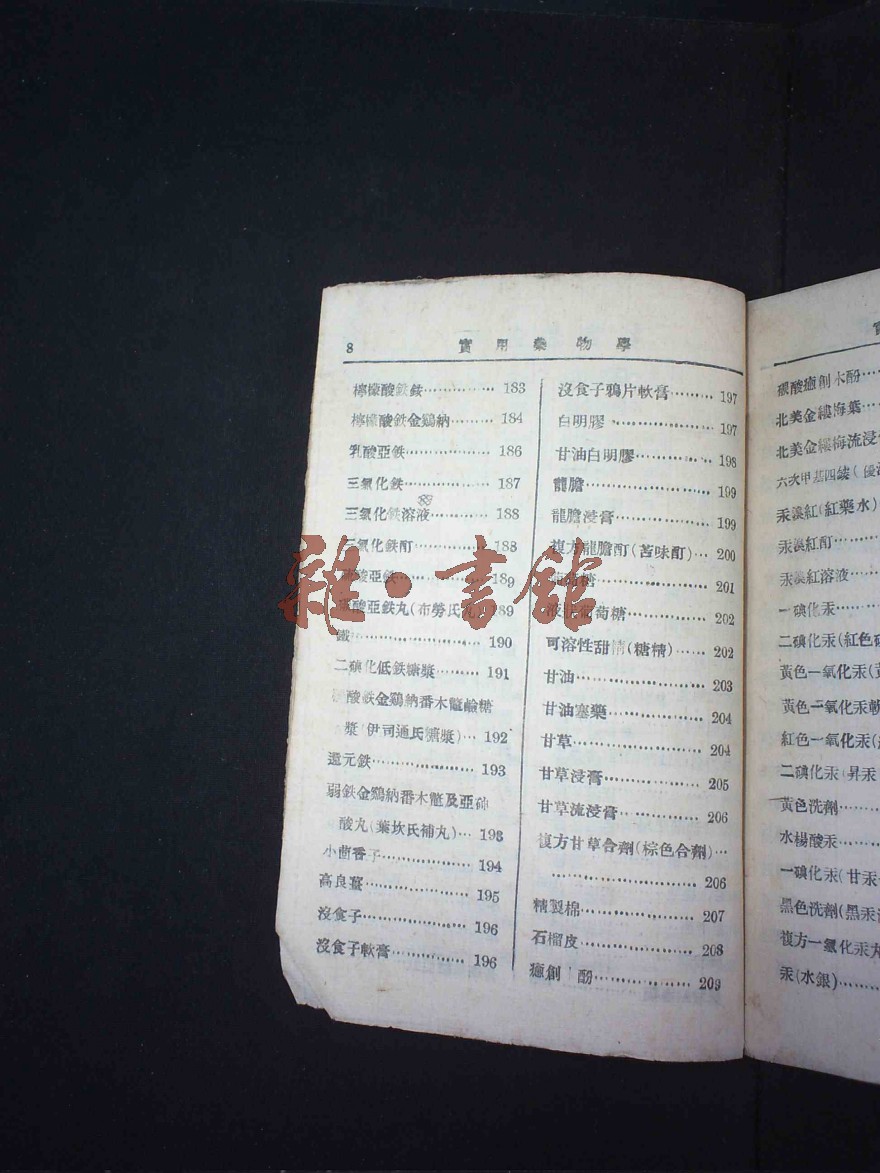 8
實用藥物學
檸檬酸鉄銨 183
檸檬酸鉄金鷄納 184
乳酸亞鉄 186
三氯化鉄 187
三氯化鉄溶液 188
三氯化鉄酊 188
酸亞鉄 189
酸亞鉄丸(布勞氏丸) 189
鐵 190
二碘化低鉄糖漿 191
酸鉄金鷄納番木鼈鹼糖
漿(伊司通氏糖漿) 192
還元鉄 193
弱鉄金鷄納番木鼈及亞砷
酸丸(葉坎氏補丸) 193
小茴香子 194
高良薑 195
沒食子 196
沒食子軟膏 196
沒食子鴉片軟膏 197
白明膠 197
甘油白明膠 198
龍膽 199
龍膽浸膏 199
複方龍膽酊(苦味酊) 200
葡萄糖 201
液狀葡萄糖 202
可溶性甜精(糖精) 202
甘油 203
甘油塞藥 204
甘草 204
甘草浸膏 205
甘草流浸膏 206
複方甘草合劑(棕色合劑)
206
精製棉 207
石榴皮 208
癒創 酚 209
碳酸癒創木酚
北美金縷梅葉
北美金縷梅流浸
六次甲基四
汞溴紅(紅藥水)
汞溴紅酊
汞溴紅溶液
一碘化汞
二碘化汞(紅色
黃色一氧化汞(
黃色一氧化汞軟
紅色一氧化汞(
二碘化汞(昇汞
黃色洗劑
水楊酸汞
一碘化汞(甘汞
黑色洗劑(黑汞
複方一氯化汞丸
汞(水銀)
雜·書館